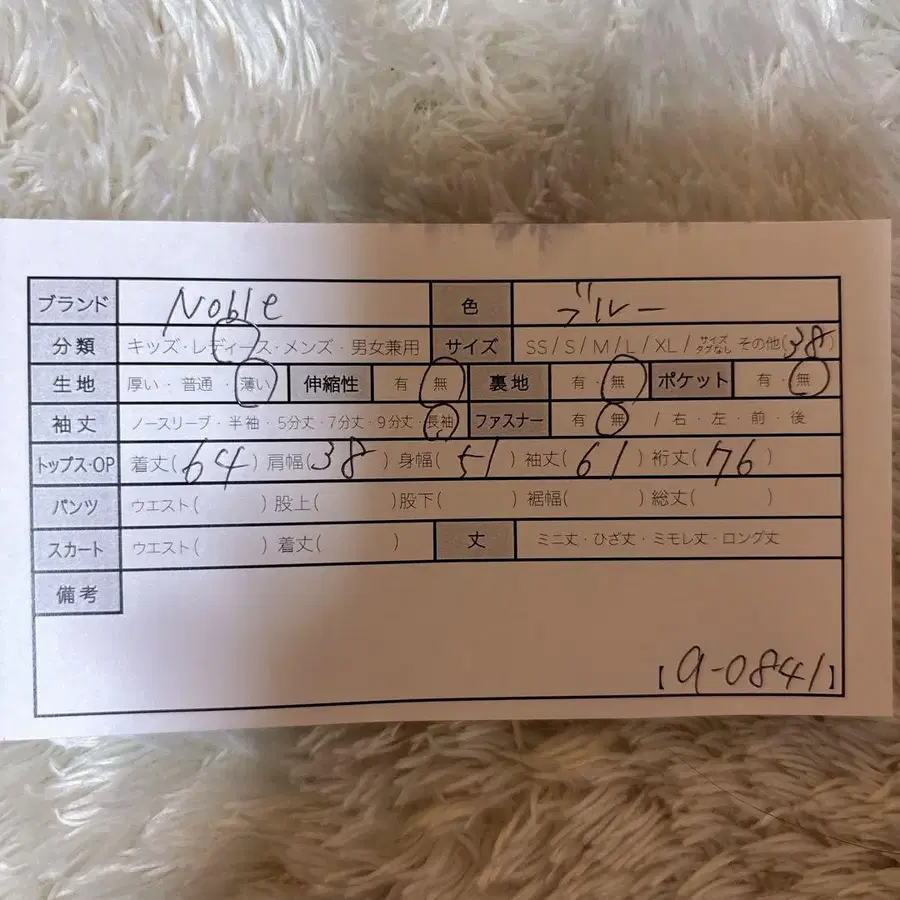 ブランド Noble 色 ブルー
分類 キッズ・レディース・メンズ・男女兼用 サイズ SS / S / M / L / XL / サイズタグなし その他(38)
生地 厚い・普通・薄い 伸縮性 有・無 裏地 有・無 ポケット 有・無
袖丈 ノースリーブ・半袖・5分丈・7分丈・9分丈・長袖 ファスナー 有・無 / 右・左・前・後
トップス・OP 着丈(64) 肩幅(38) 身幅(51) 袖丈(61) 裄丈(76)
パンツ ウエスト( ) 股上( ) 股下( ) 裾幅( ) 総丈( )
スカート ウエスト( ) 着丈( ) 丈 ミニ丈・ひざ丈・ミモレ丈・ロング丈
備考
【a-0841】